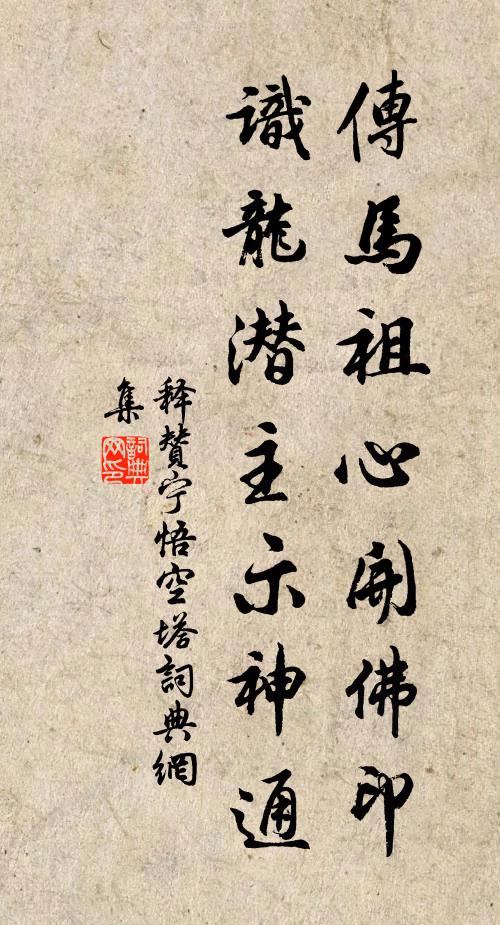 傳馬祖心開佛印
識龍潛主示神通
释贊宁悟空塔詞典網
集
詞典
网印